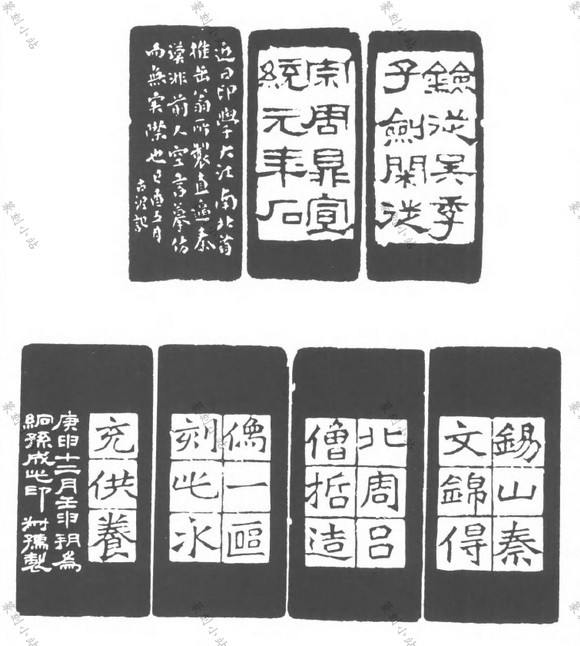 鐱從吳季
子劍閑從
宗周鼎宣
統元年石
近日印學大江南北首
推缶翁所製直逼秦
漢非前人空言摹仿
而無實際也己酉五月
石潛記
錫山秦
文錦得
北周呂
僧哲造
像一區
刻此永
充供養
庚申十二月壬申朔為
絅孫成此印 叔孺製
篆刻小站